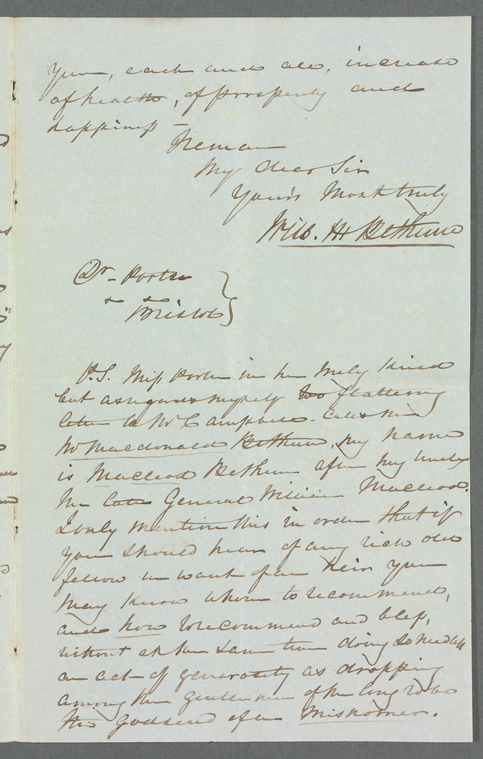 you, each and all, increase
of health, of prosperity and
happiness —
I remain
My dear Sir
Yours Most truly
Will. M Bethune
Dr. Porter
Bristol
P.S. Miss Porter in her truly kind
but as regards myself too flattering
letter to Mr Campbell calls me
Mr Macdonald Bethune, my name
is Macleod Bethune after my uncle
the late General William Macleod.
I only mention this in order that if
you should hear of any rich old
fellow in want of an heir you
may know whom to recommend,
and how to recommend and bless,
without at the same time doing so
an act of generosity as dropping
among the gentlemen of the long robe
the godsend of a Misnomer.